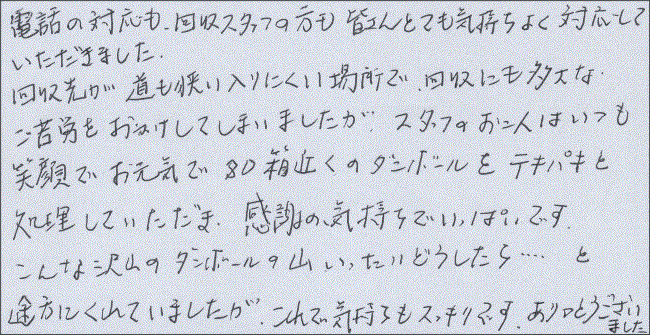 電話の対応も、回収スタッフの方も皆さんとても気持ちよく対応して
いただきました。
回収先が道も狭い入りにくい場所で、回収にも多大な
ご苦労をおかけしてしまいましたが、スタッフのお二人はいつも
笑顔でお元気で80箱近くのダンボールをテキパキと
処理していただき、感謝の気持ちでいっぱいです。
こんな沢山のダンボールの山いったいどうしたら‥‥と
途方にくれていましたが、これで気持ちもスッキリです。ありがとうござい
ました